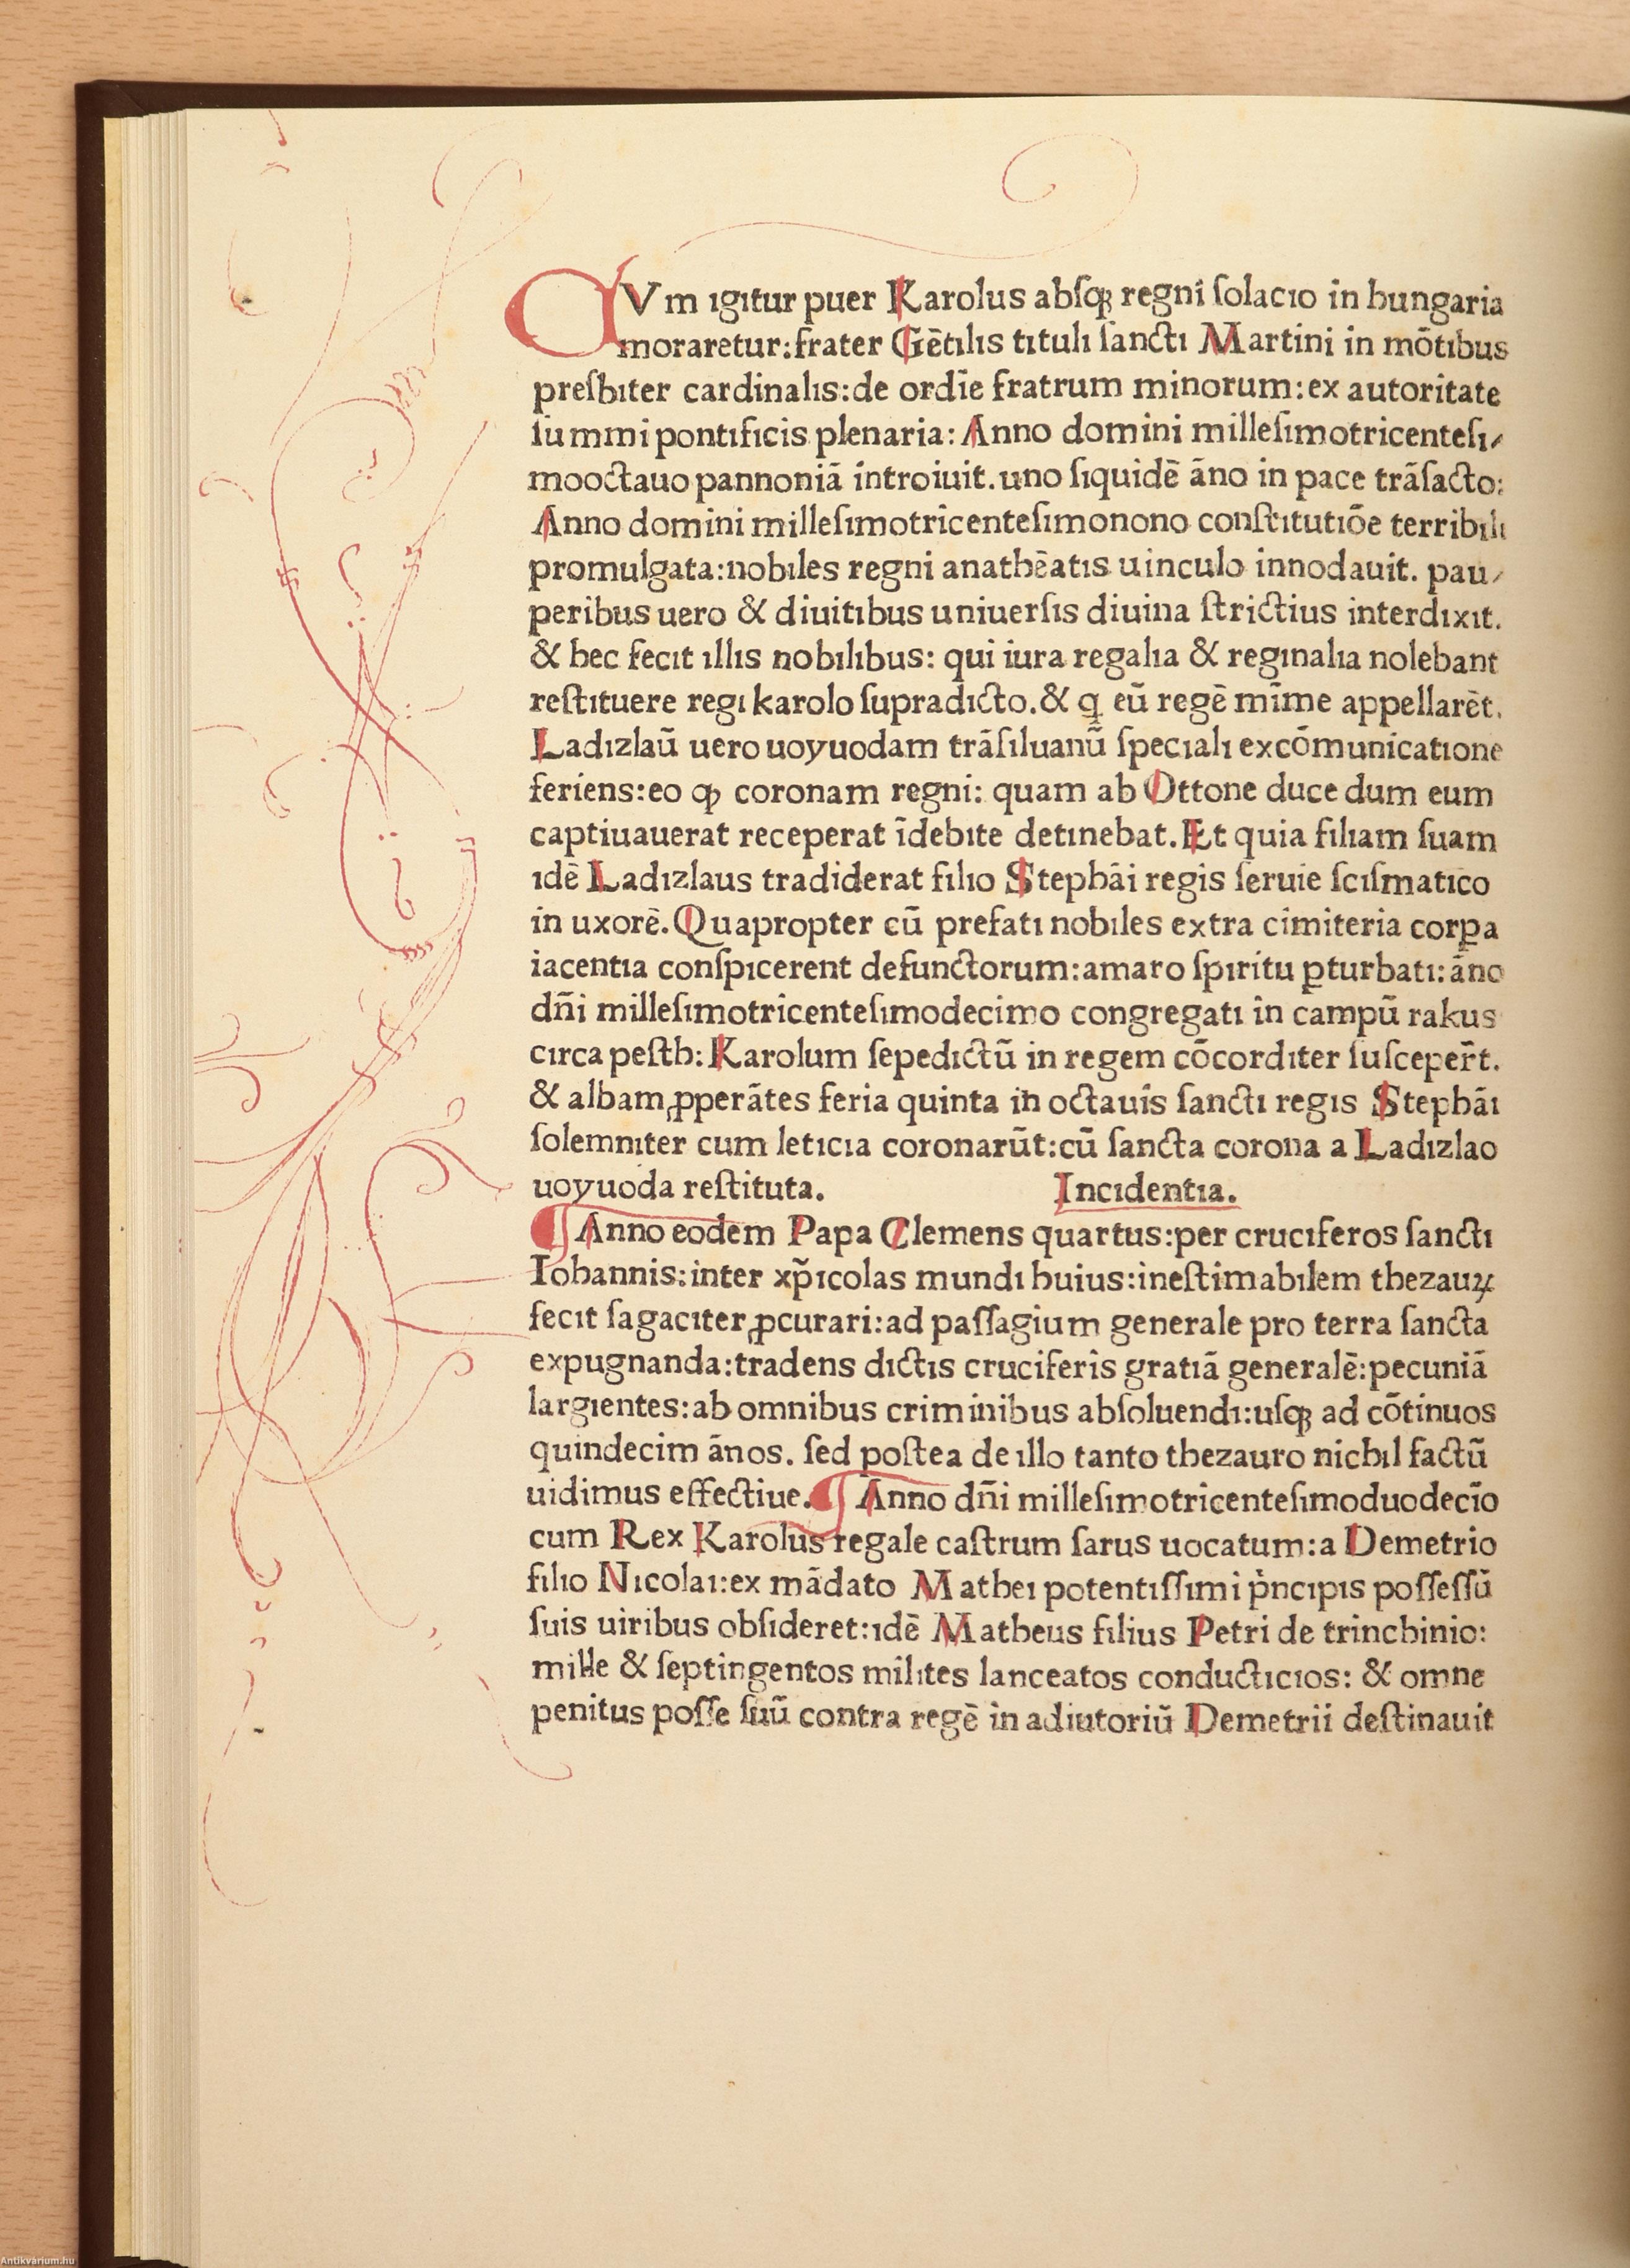 CVm igitur puer Karolus absqꝫ regni solacio in hungaria
moraretur:frater Gētilis tituli sancti Martini in mōtibus
presbiter cardinalis:de ordīe fratrum minorum:ex autoritate
summi pontificis plenaria: Anno domini millesimotricentesi/
mooctauo pannoniā introiuit.uno siquidē āno in pace trāsacto:
Anno domini millesimotricentesimonono constitutiōe terribili
promulgata:nobiles regni anathēatis uinculo innodauit. pau/
peribus uero & diuitibus uniuersis diuina strictius interdixit.
& hec fecit illis nobilibus: qui iura regalia & reginalia nolebant
restituere regi karolo supradicto.& q eū regē mīme appellarēt.
Ladizlaū uero uoyuodam trāsiluanū speciali excōmunicatione
feriens:eo ꝙ coronam regni: quam ab Ottone duce dum eum
captiuauerat receperat īdebite detinebat.Et quia filiam suam
idē Ladizlaus tradiderat filio Stephāi regis seruie scismatico
in uxorē.Quapropter cū prefati nobiles extra cimiteria corꝑa
iacentia conspicerent defunctorum:amaro spiritu ꝑturbati:āno
dn̄i millesimotricentesimodecimo congregati in campū rakus
circa pesth:Karolum sepedictū in regem cōcorditer susceper̄t.
& albam ꝓperātes feria quinta in octauis sancti regis Stephāi
solemniter cum leticia coronarūt:cū sancta corona a Ladizlao
uoyuoda restituta. Incidentia.
¶ Anno eodem Papa Clemens quartus:per cruciferos sancti
Iohannis:inter xp̄icolas mundi huius:inestimabilem thezauꝝ
fecit sagaciter ꝓcurari:ad passagium generale pro terra sancta
expugnanda:tradens dictis cruciferis gratiā generalē:pecuniā
largientes:ab omnibus criminibus absoluendi:usqꝫ ad cōtinuos
quindecim ānos. sed postea de illo tanto thezauro nichil factū
uidimus effectiue. ¶ Anno dn̄i millesimotricentesimoduodecīo
cum Rex Karolus regale castrum sarus uocatum:a Demetrio
filio Nicolai:ex mādato Mathei potentissimi pͥncipis possessū
suis uiribus obsideret:idē Matheus filius Petri de trinchinio:
mille & septingentos milites lanceatos conducticios: & omne
penitus posse suū contra regē in adiutoriū Demetrii destinauit
Antikvárium.hu